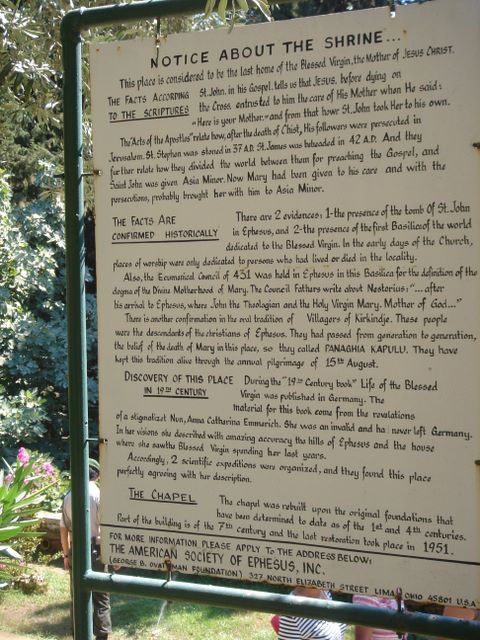 NOTICE ABOUT THE SHRINE...
This place is considered to be the last home of the Blessed Virgin, the Mother of JESUS CHRIST.
THE FACTS ACCORDING TO THE SCRIPTURES
St. John, in his Gospel, tells us that JESUS, before dying on
the Cross, entrusted to him the care of His Mother when He said:
"Here is your Mother." and from that hour St. John took Her to his own.
The "Acts of the Apostles" relate how, after the death of Chist, His followers were persecuted in
Jerusalem. St. Stephen was stoned in 37 A.D. St. James was beheaded in 42 A.D. And they
further relate how they divided the world between them for preaching the Gospel, and
Saint John was given Asia Minor. Now Mary had been given to his care and with the
persecutions, probably brought her with him to Asia Minor.
THE FACTS ARE CONFIRMED HISTORICALLY
There are 2 evidences: 1-the presence of the tomb Of St. John
in Ephesus, and 2-the presence of the first Basilica of the world
dedicated to the Blessed Virgin. In the early days of the Church,
places of worship were only dedicated to persons who had lived or died in the locality.
Also, the Ecumanical Council of 431 was held in Ephesus in this Basilica for the definition of the
dogma of the Divine Motherhood of Mary. The Council Fathers write about Nestorius: "... after
his arrival to Ephesus, where John the Theologian and the Holy Virgin Mary. Mother of God..."
There is another confirmation in the oral tradition of Villagers of Kirkindje. These people
were the descendants of the christians of Ephesus. They had passed from generation to generation,
the belief of the death of Mary in this place, so they called PANAGHIA KAPULU. They have
kept this tradition alive through the annual pilgrimage of 15th August.
DISCOVERY OF THIS PLACE IN 19TH CENTURY
During the "19th Century book" Life of the Blessed
Virgin was published in Germany. The
material for this book come from the revelations
of a stigmatizet Nun, Anna Catharina Emmerich. She was an invalid and ha never left Germany.
In her visions she described with amazing accuracy the hills of Ephesus and the house
where she saw the Blessed Virgin spending her last years.
Accordingly, 2 scientific expeditions were organized, and they found this place
perfectly agreeing with her description.
THE CHAPEL
The chapel was rebuilt upon the original foundations that
have been determined to date as of the 1st and 4th centuries.
Part of the building is of the 7th century and the last restoration took place in 1951.
FOR MORE INFORMATION PLEASE APPLY TO THE ADDRESS BELOW:
THE AMERICAN SOCIETY OF EPHESUS, INC.
(GEORGE B. QUATMAN FOUNDATION) 327 NORTH ELIZABETH STREET LIMA, OHIO 45801 U.S.A